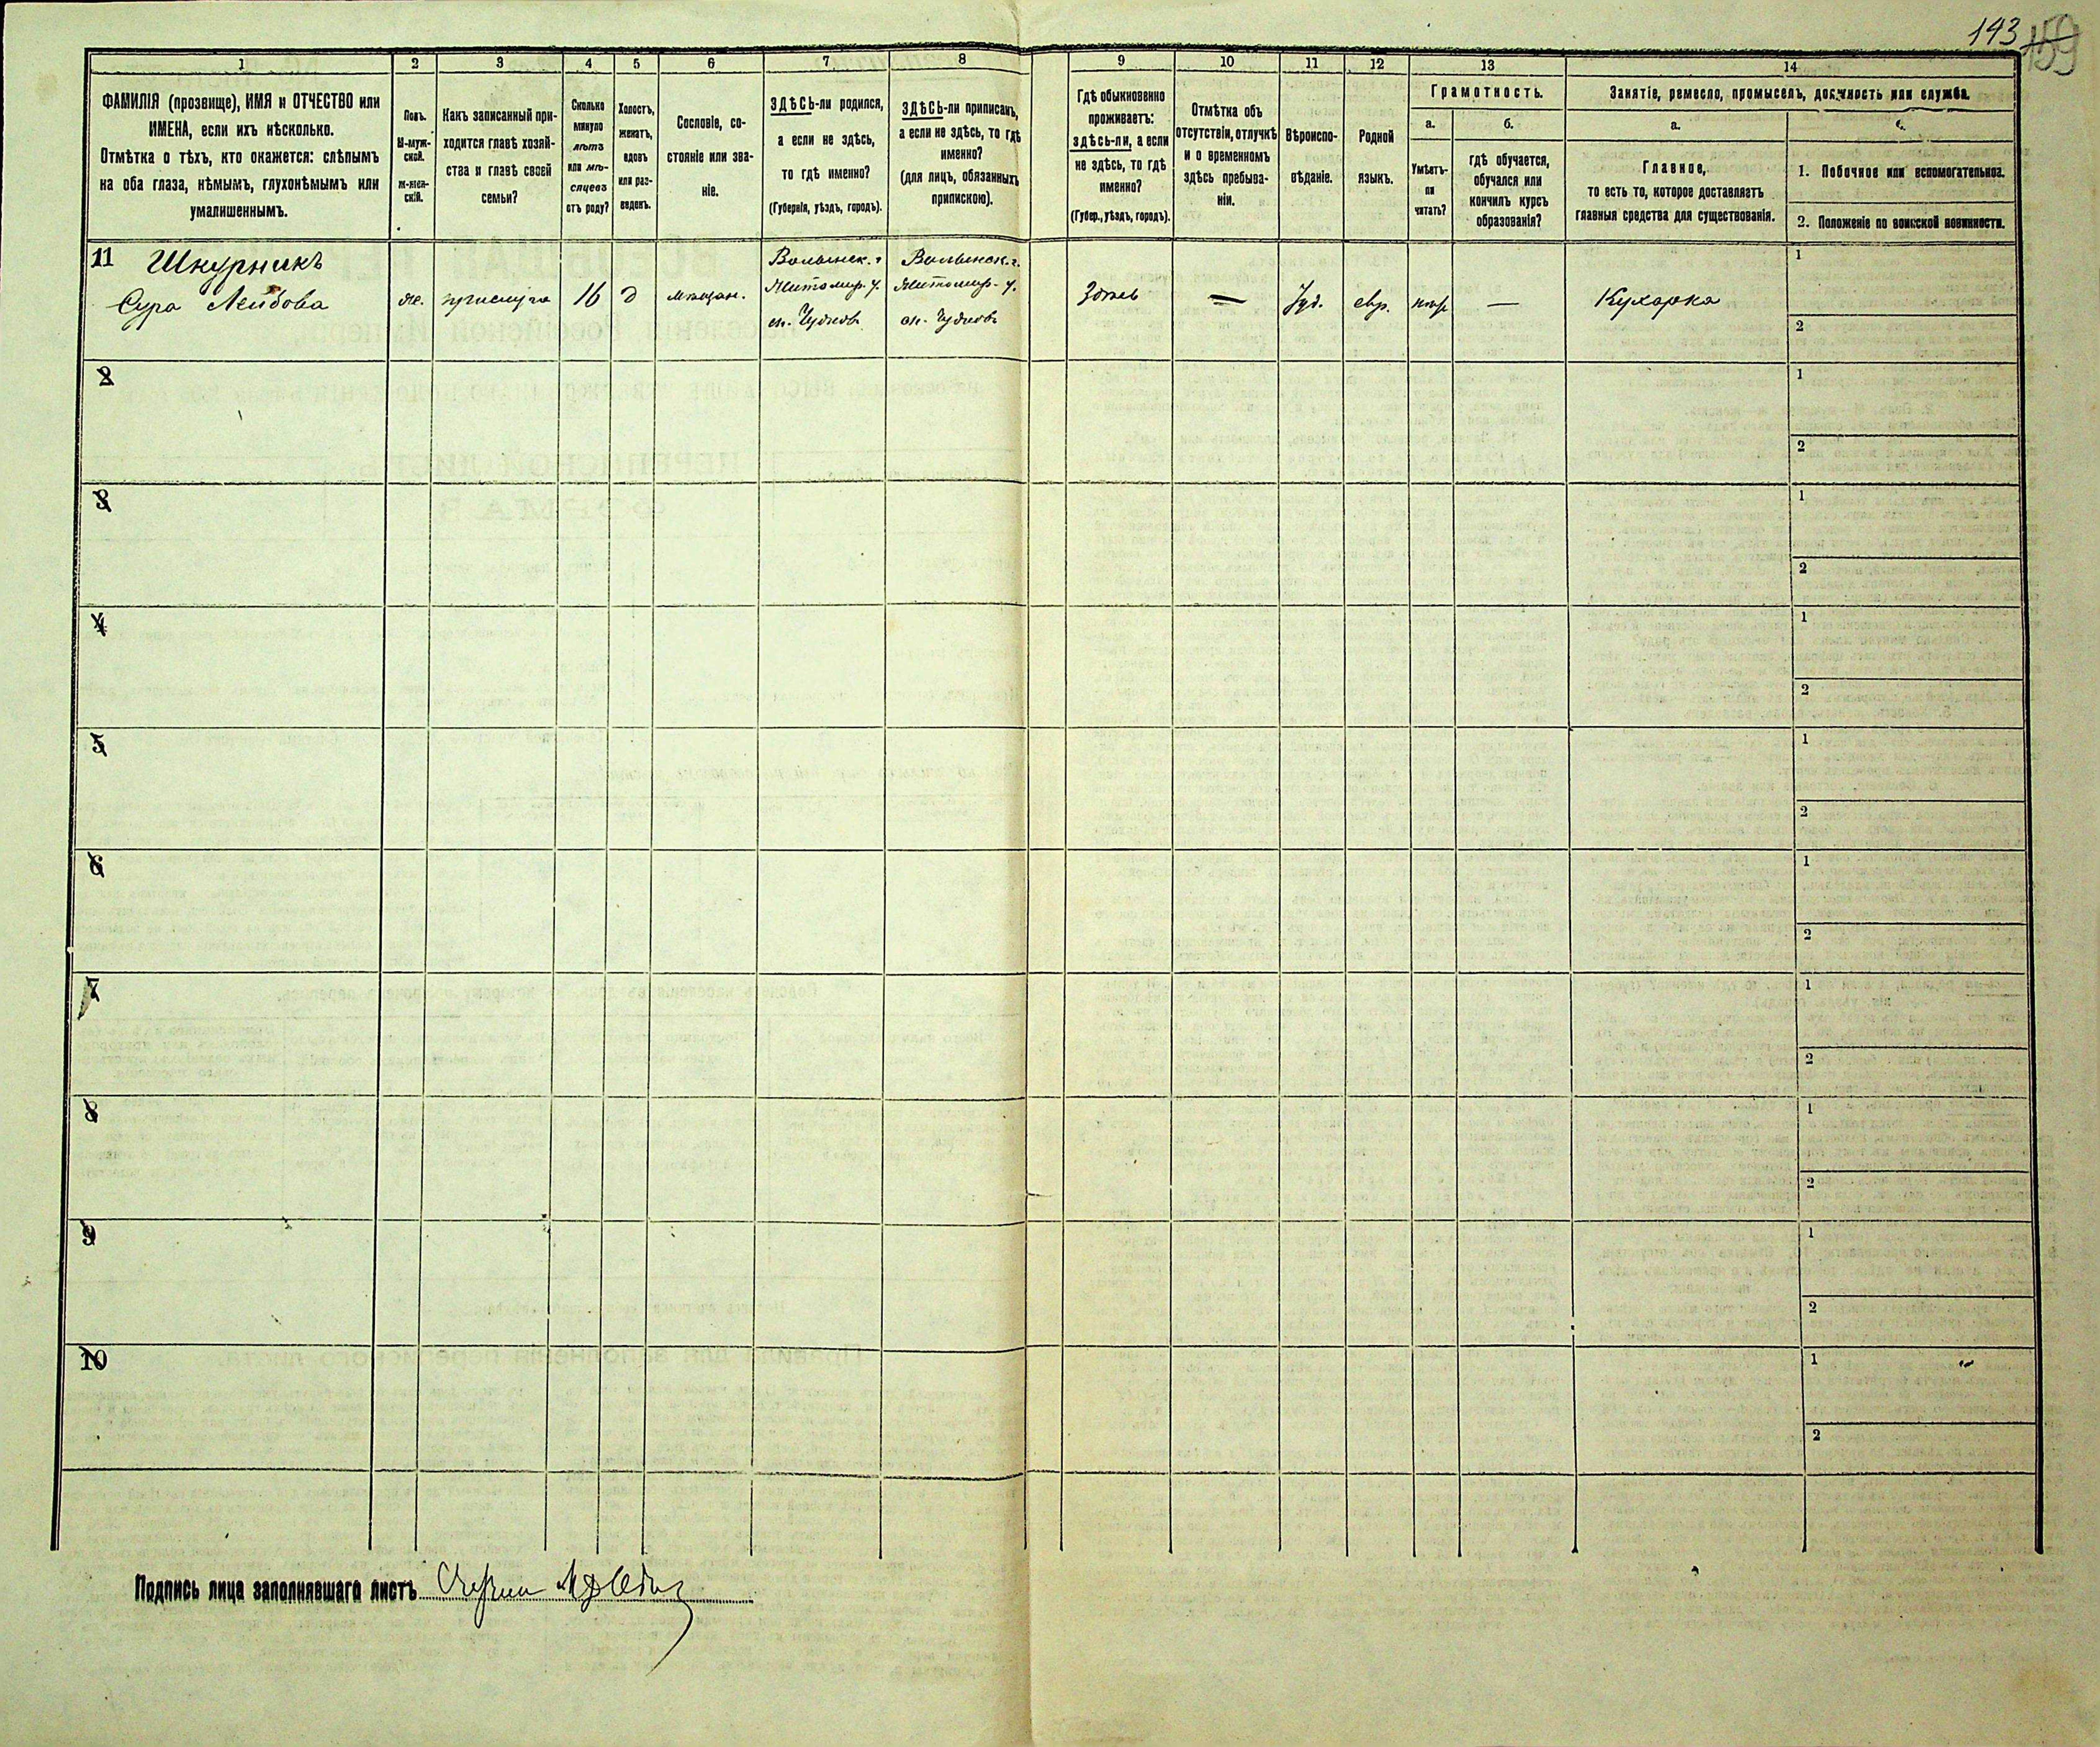 143 159
1 2 3 4 5 6 7 8 9 10 11 12 13 14
ФАМИЛІЯ (прозвище), ИМЯ и ОТЧЕСТВО или
ИМЕНА, если ихъ нѣсколько.
Отмѣтка о тѣхъ, кто окажется: слѣпымъ
на оба глаза, нѣмымъ, глухонѣмымъ или
умалишеннымъ.
Полъ.
М-муж-
ской.
ж-жен-
скій.
Какъ записанный при-
ходится главѣ хозяй-
ства и главѣ своей
семьи?
Сколько
минуло
лѣтъ
или мѣ-
сяцевъ
отъ роду?
Холостъ,
женатъ,
вдовъ
или раз-
веденъ.
Сословіе, со-
стояніе или зва-
ніе.
ЗДѢСЬ-ли родился,
а если не здѣсь,
то гдѣ именно?
(Губернія, уѣздъ, городъ).
ЗДѢСЬ-ли приписанъ,
а если не здѣсь, то гдѣ
именно?
(для лицъ, обязанныхъ
припискою).
Гдѣ обыкновенно
проживаетъ:
здѣсь-ли, а если
не здѣсь, то гдѣ
именно?
(Губер., уѣздъ, городъ).
Отмѣтка объ
отсутствіи, отлучкѣ
и о временномъ
здѣсь пребыва-
ніи.
Вѣроиспо-
вѣданіе.
Родной
языкъ.
Грамотность.
а.
Умѣетъ-
ли
читать?
б.
гдѣ обучается,
обучался или
кончилъ курсъ
образованія?
Занятіе, ремесло, промыселъ, должность или служба.
а.
Главное,
то есть то, которое доставляетъ
главныя средства для существованія.
1. Побочное или вспомогательное.
2. Положеніе по воинской повинности.
11 Шкурникъ
Сура Лейбова
же. прислуга 16 д мѣщан.
Волынск. г
Житомир. у.
Чудновъ
Волынск. г.
Житомир. у.
Чудновъ
Здѣсь — Іуд. евр. — Кухарка
1
2
2
1
2
3
1
2
4
1
2
5
1
2
6
1
2
7
1
2
8
1
2
9
1
2
10
1
2
Подпись лица заполнявшаго листъ